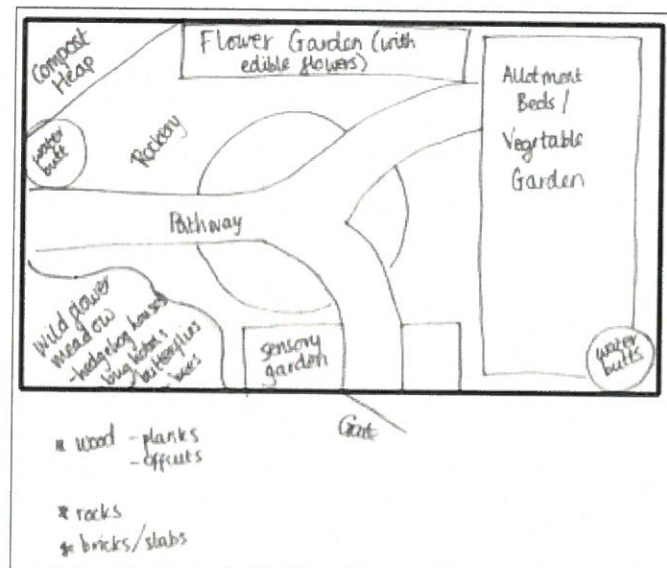 Compost
Heap
Flower Garden (with
edible flowers)
Allotment
Beds /
Vegetable
Garden
water
butt
Rockery
Pathway
Wild flower
meadow
- hedgehog houses
bug hotels
butterflies
bees
sensory
garden
water
butts
Gate
* wood - planks
- offcuts
* rocks
* bricks/slabs